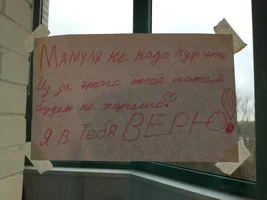 Мамуля не надо Курить
Из за этого тебе потом
будет не хорошо
Я в Тебя ВЕРЮ